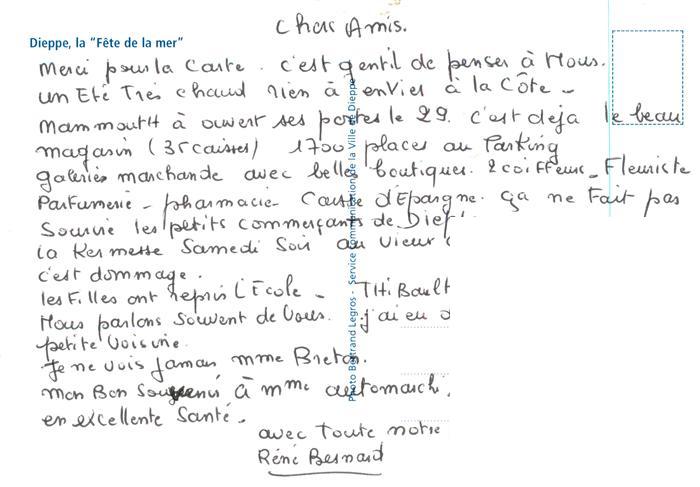 Chers Amis.
Dieppe, la "Fête de la mer"
Merci pour la Carte. c'est gentil de penser à Nous.
un Eté Très chaud rien à envier à la Côte -
Mammouth à ouvert ses portes le 29. c'est deja le beau
magasin (35 caisses) 1700 places au Parking
galeries marchande avec belles boutiques. 2 coiffeurs - Fleuriste
Parfumerie - pharmacie - Caisse d'Epargne. ça ne Fait pas
Sourire les petits commerçants de Diep
la Kermesse Samedi Soir au vieux
c'est dommage.
les Filles ont repris l'Ecole - THiBault
Nous parlons Souvent de Vous. j'ai eu
petite Voisine.
Je ne vois Jamais mme Breton.
Mon Bon Souvenir à mme
en excellente Santé.
avec Toute notre
Réné Besnard
Photo Bertrand Legros - Service Communication de la Ville de Dieppe